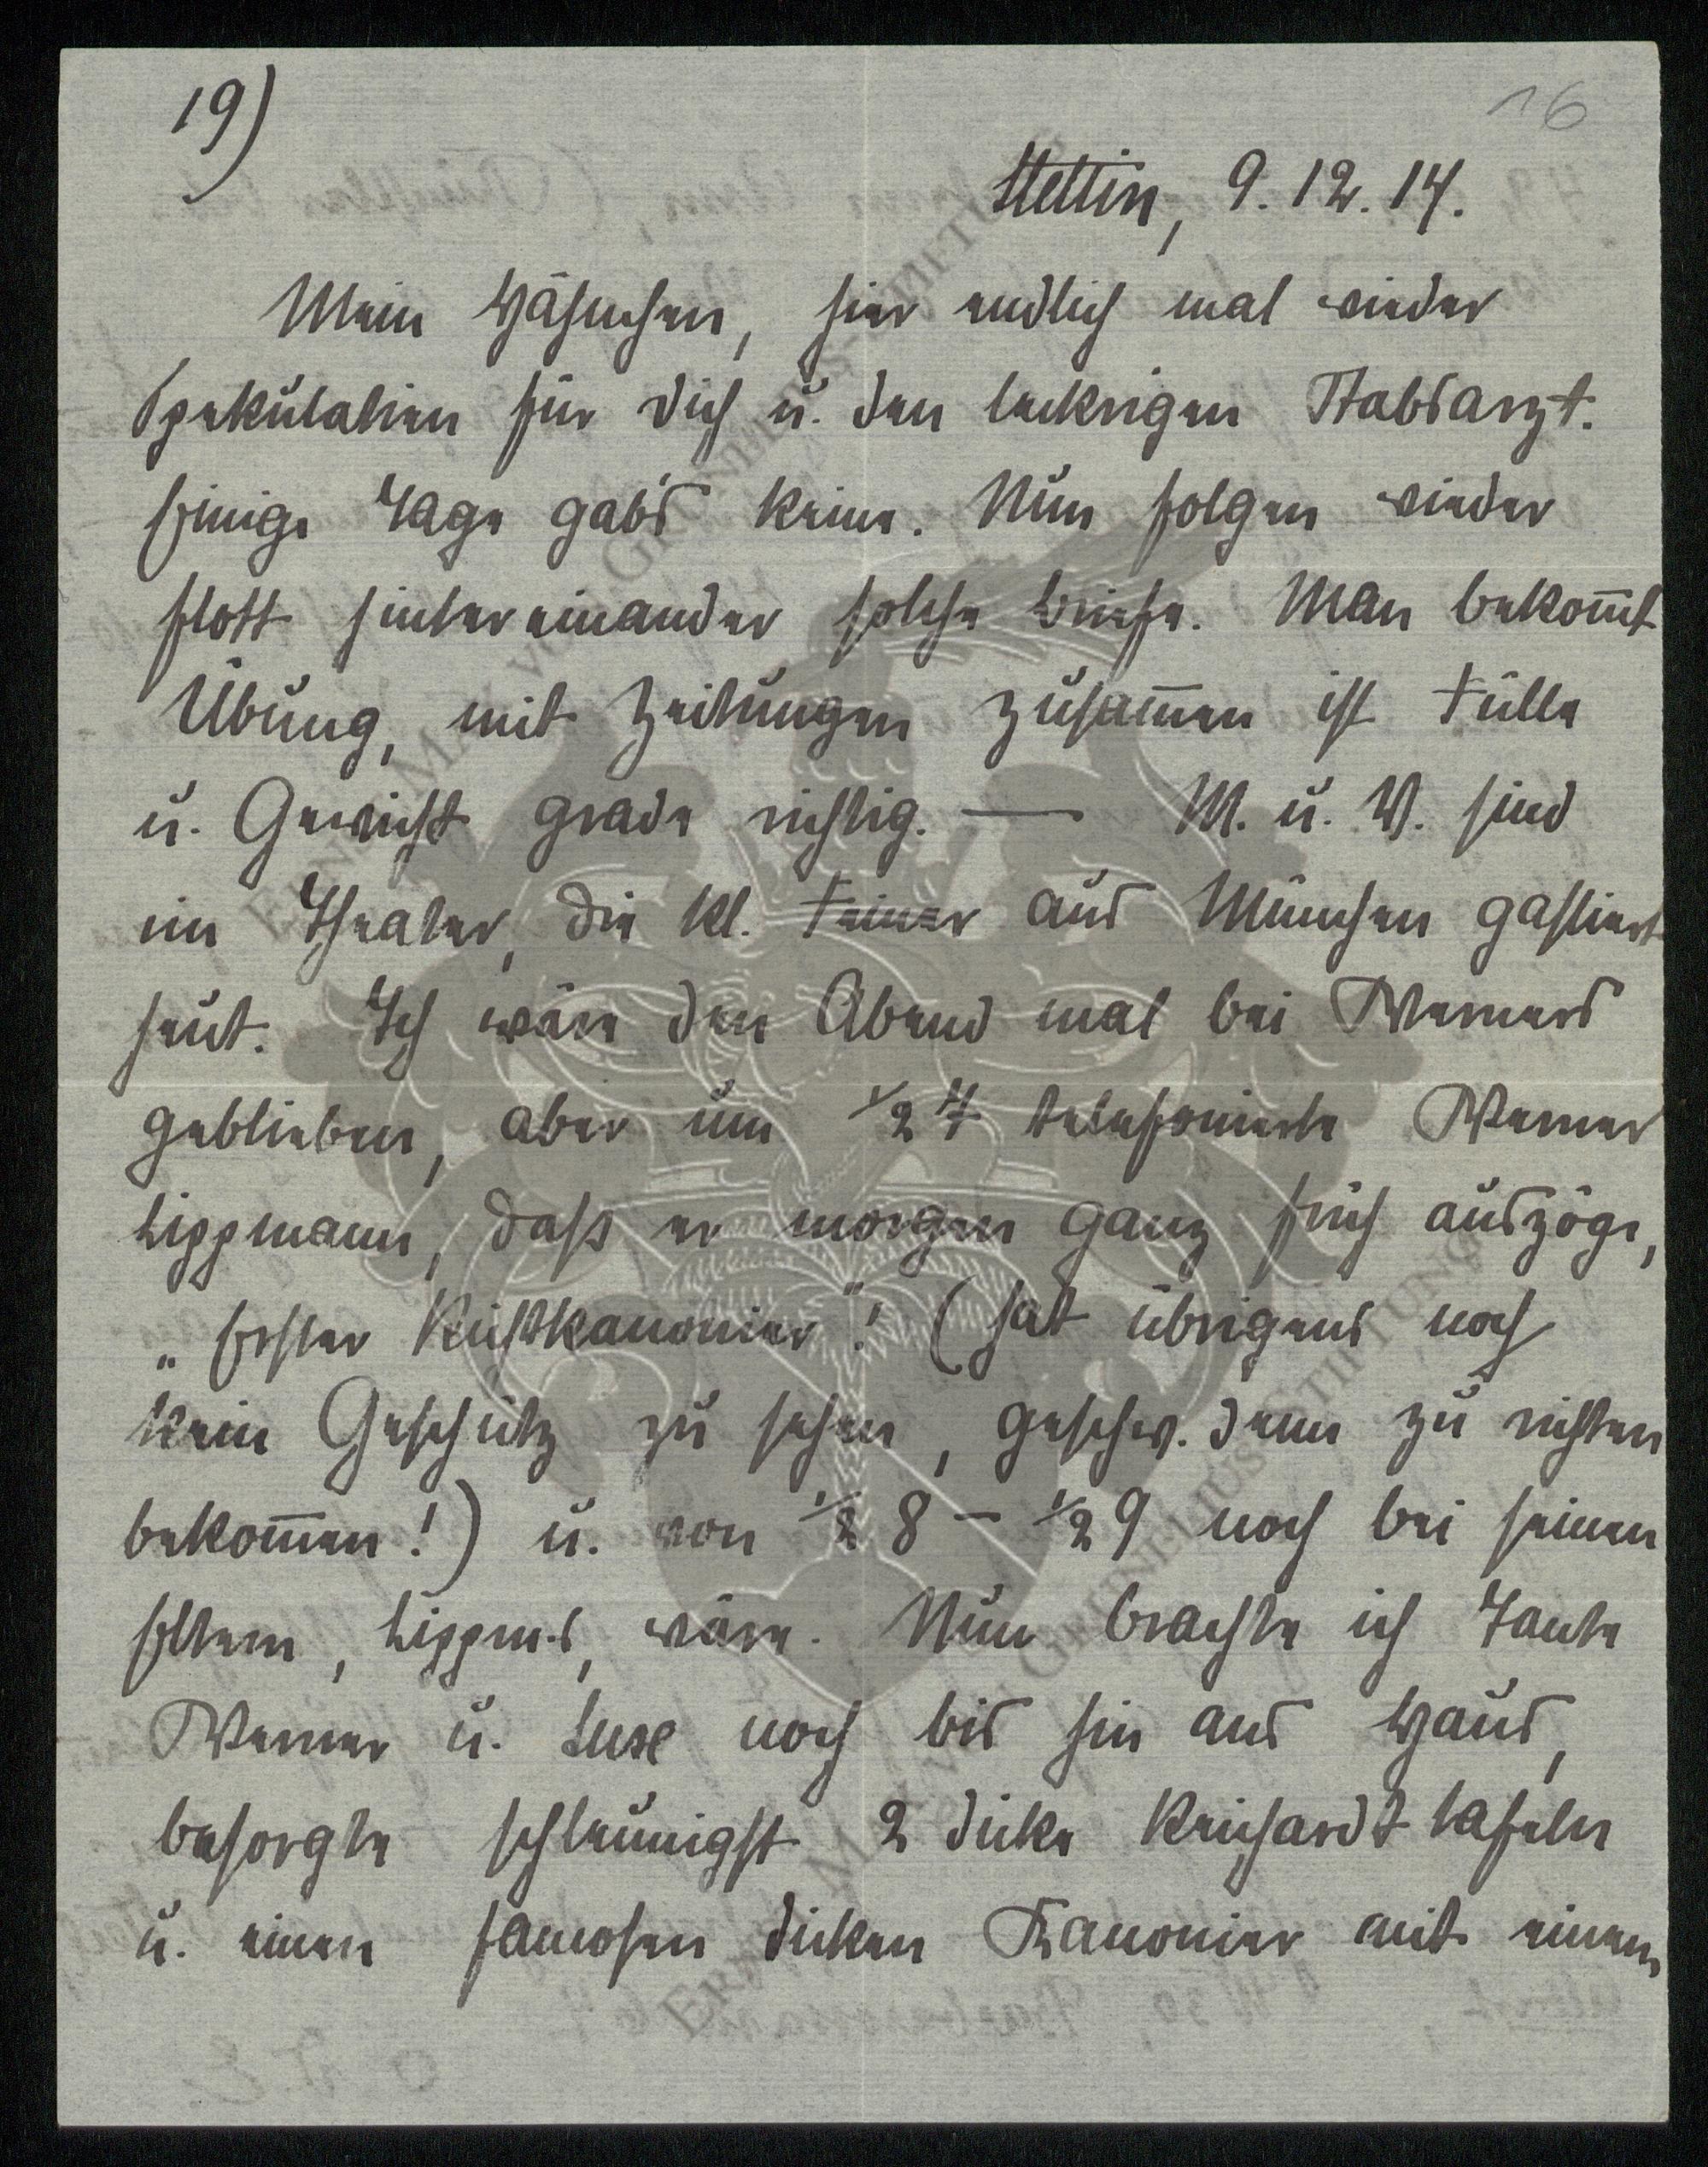 19)
16
Stettin, 9. 12. 14.
Mein Hähnchen, hier endlich mal wieder
Spekulatien für dich u. den leckrigen Stabsarzt.
Einige Tage gab's keine. Nun folgen wieder
flott hintereinander solche Briefe. Man bekom̅t
Übung, mit Zeitungen zusam̅en ist Fülle
u. Gewicht grade richtig. — M. u. W. sind
im Theater, die kl. Feiner aus München gastiert
heut. Ich wäre den Abend mal bei Werners
geblieben, aber um ½ 7 telefonierte Werner
Lippmann, dass er morgen ganz früh auszöge,
„Erster Richtkanonier"! (hat übrigens noch
kein Geschütz zu sehen, geschw. denn zu richten
bekom̅en!) u. von ½ 8 – ½ 9 noch bei seinen
Eltern, Lippm's, wäre. Nun brachte ich Tante
Werner u. Luse noch bis hin ans Haus,
besorgte schleunigst 2 dicke Reichardt tafeln
u. einen famosen dicken Kanonier mit einem
ERNST MAX VON GRUNELIUS-STIFTUNG
ERNST MAX VON GRUNELIUS-STIFTUNG